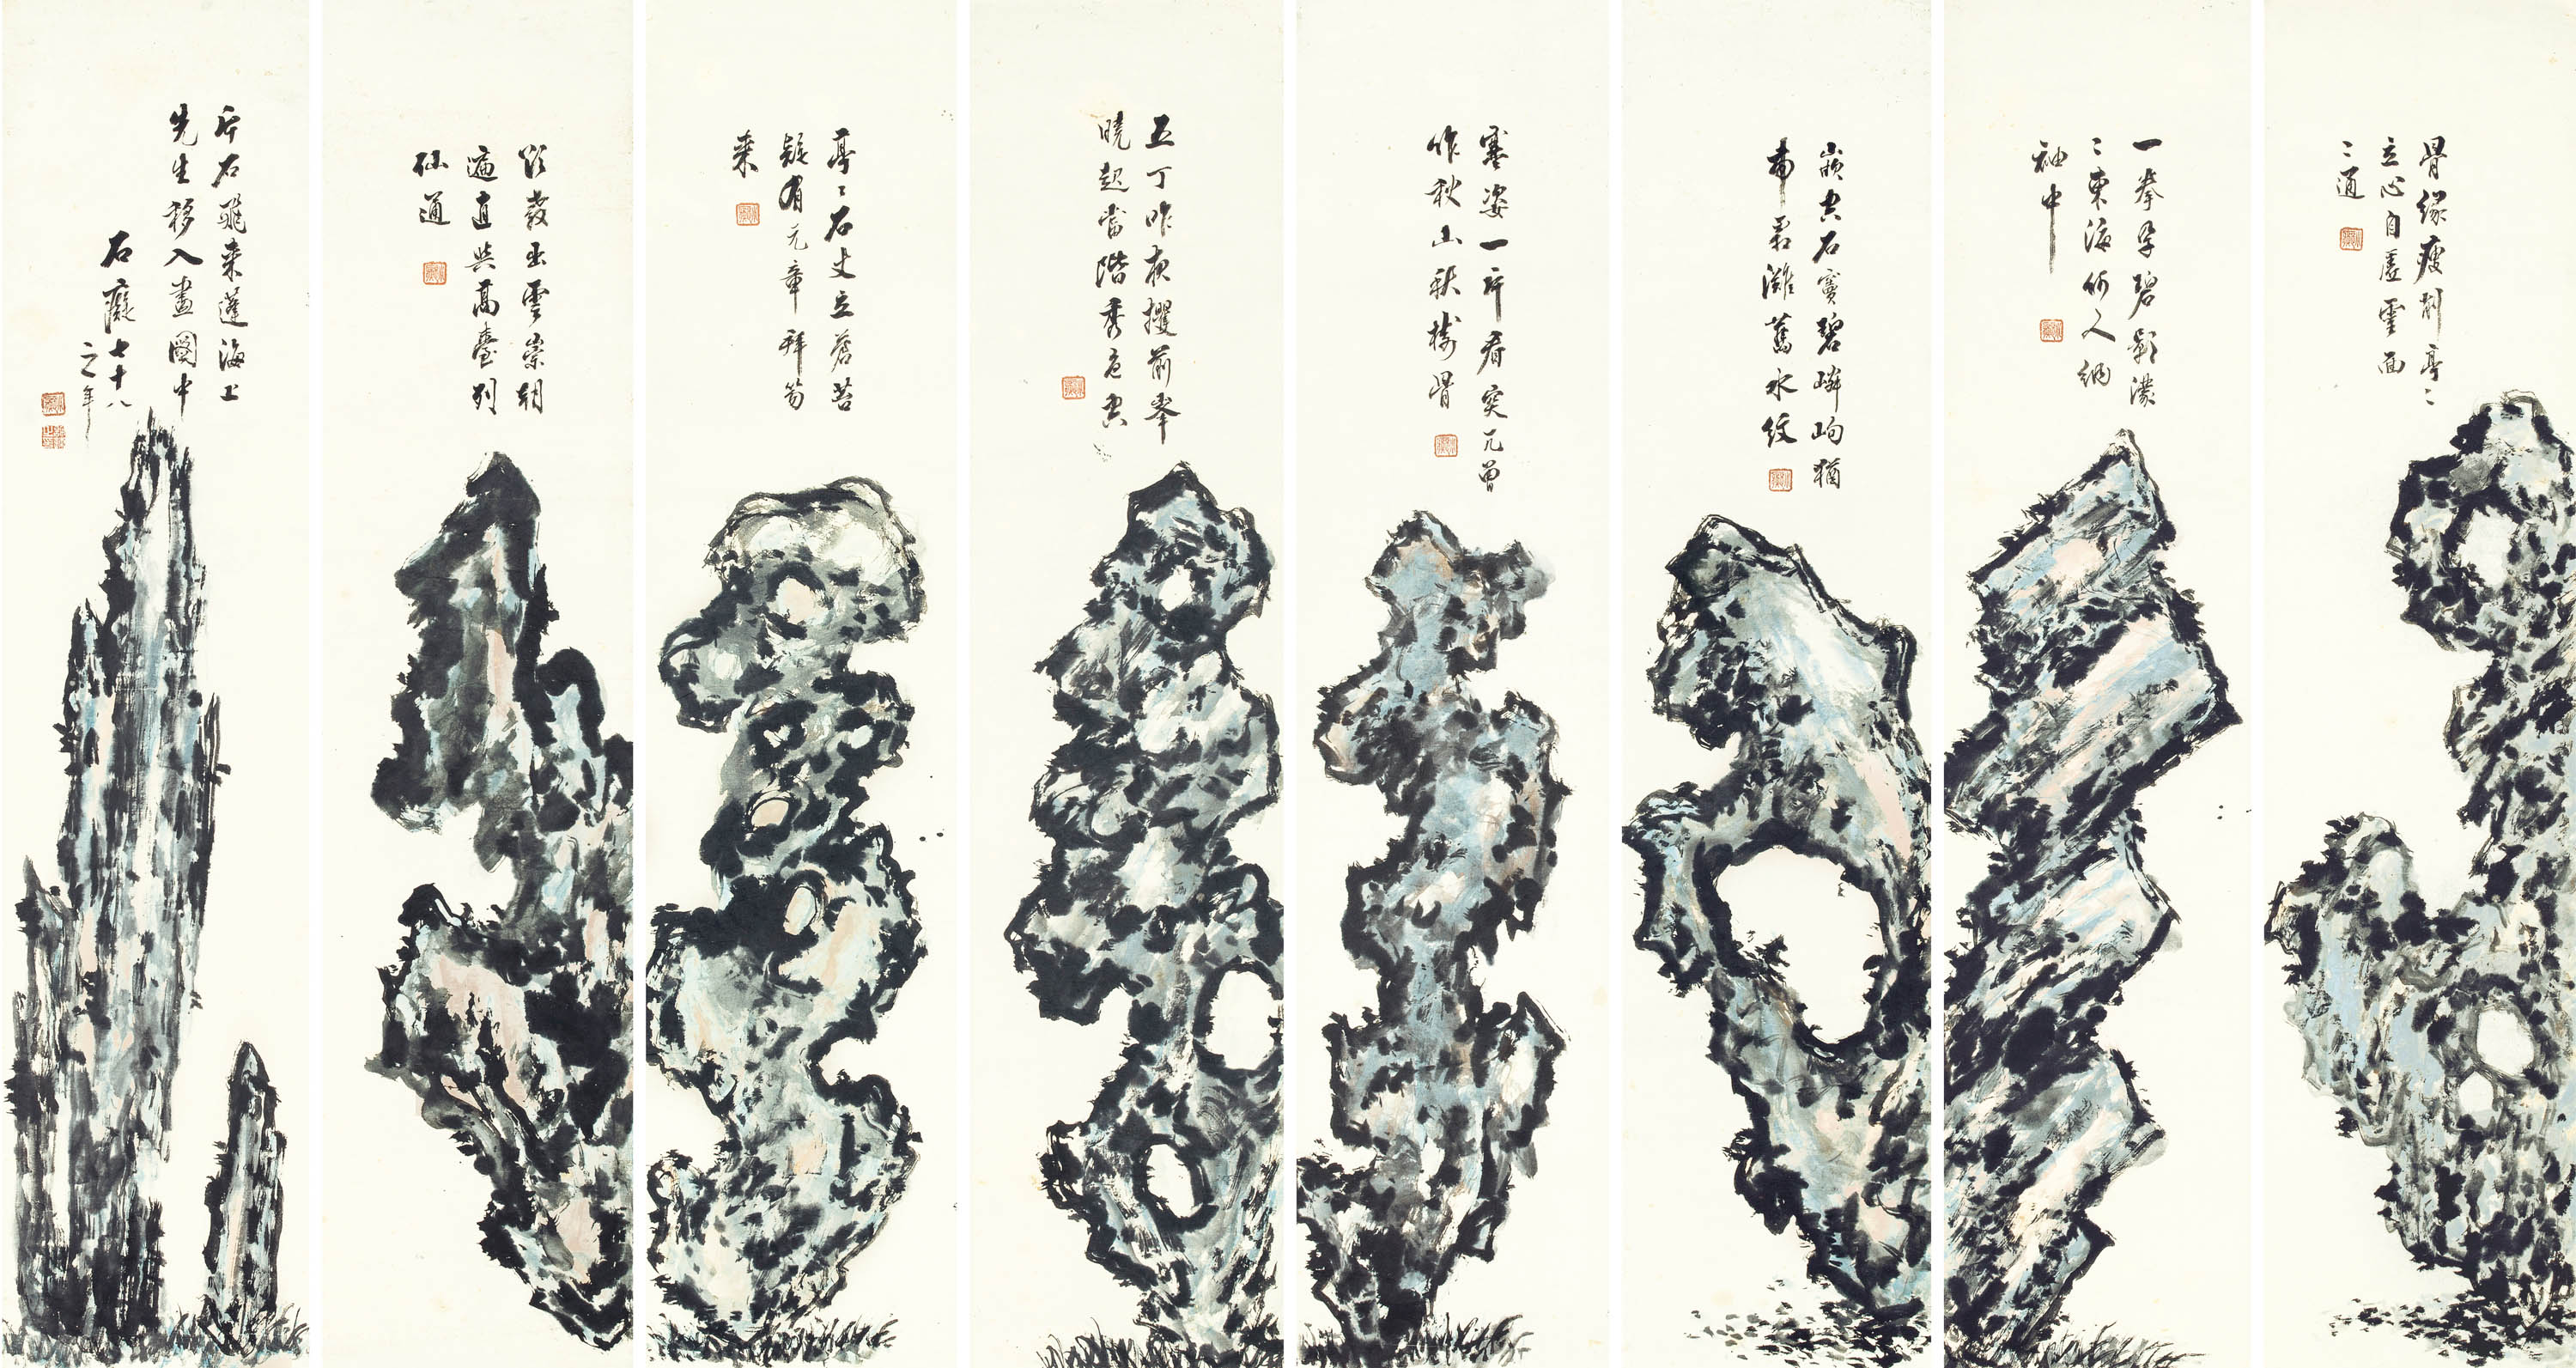 骨緣瘦削亭〻
立心自虛靈面
〻通
一拳孕碧影濛
〻東海何人納
袖中
嵌空石竇碧嶙峋猶
帶灘舊水紋
寒姿一片看突兀曾
作秋山秋樹骨
五丁昨夜攫前峯
曉起當階秀色空
亭〻石丈立蒼苔
疑有元章拜笏
來
出雲崇朝
遍直與高臺列
仙通
片石飛來蓬海上
先生移入畫圖中
石癡七十八
之年